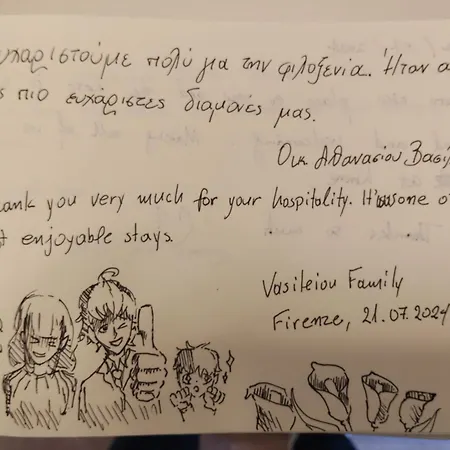 πολύ για την φιλοξενία. Ήταν
πιο ευχάριστες διαμονές μας.
Οικ. Αθανασίου
you very much for your hospitality. It was one
enjoyable stays.
Vasileiou Family
Firenze, 21.07.2024